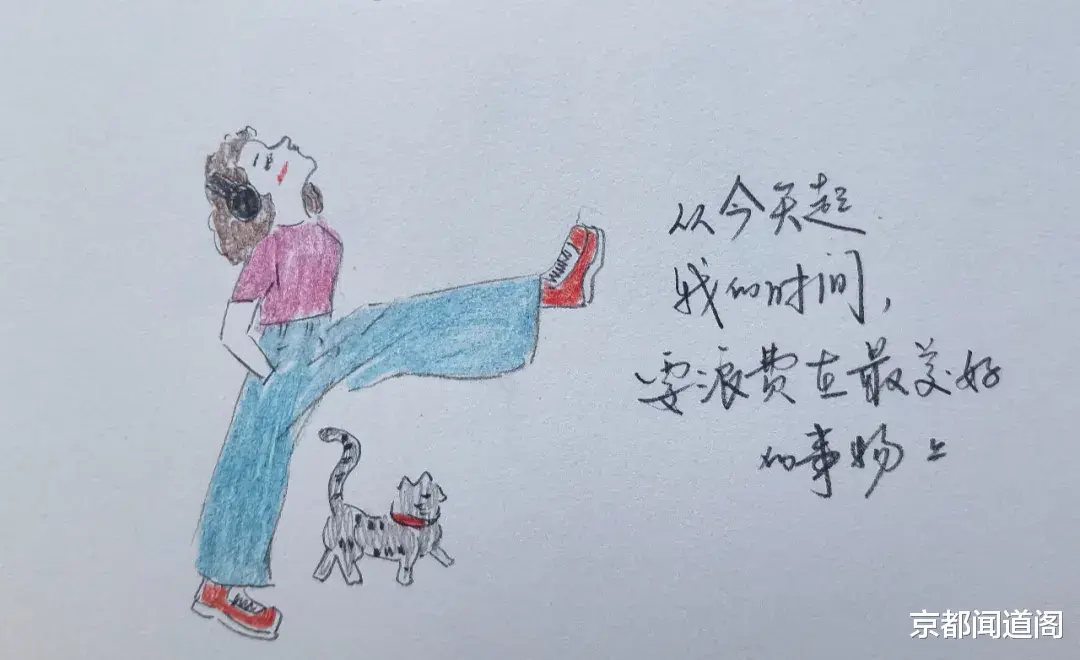 从今天起
我的时间,
要浪费在最美好
的事物上
京都闻道阁